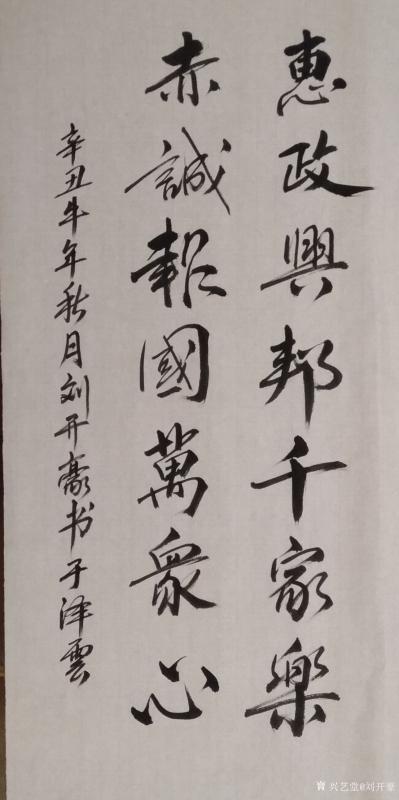 惠政興邦千家樂
赤誠報國萬衆心
辛丑牛年秋月刘开豪书于泽雲
兴艺堂@刘开豪